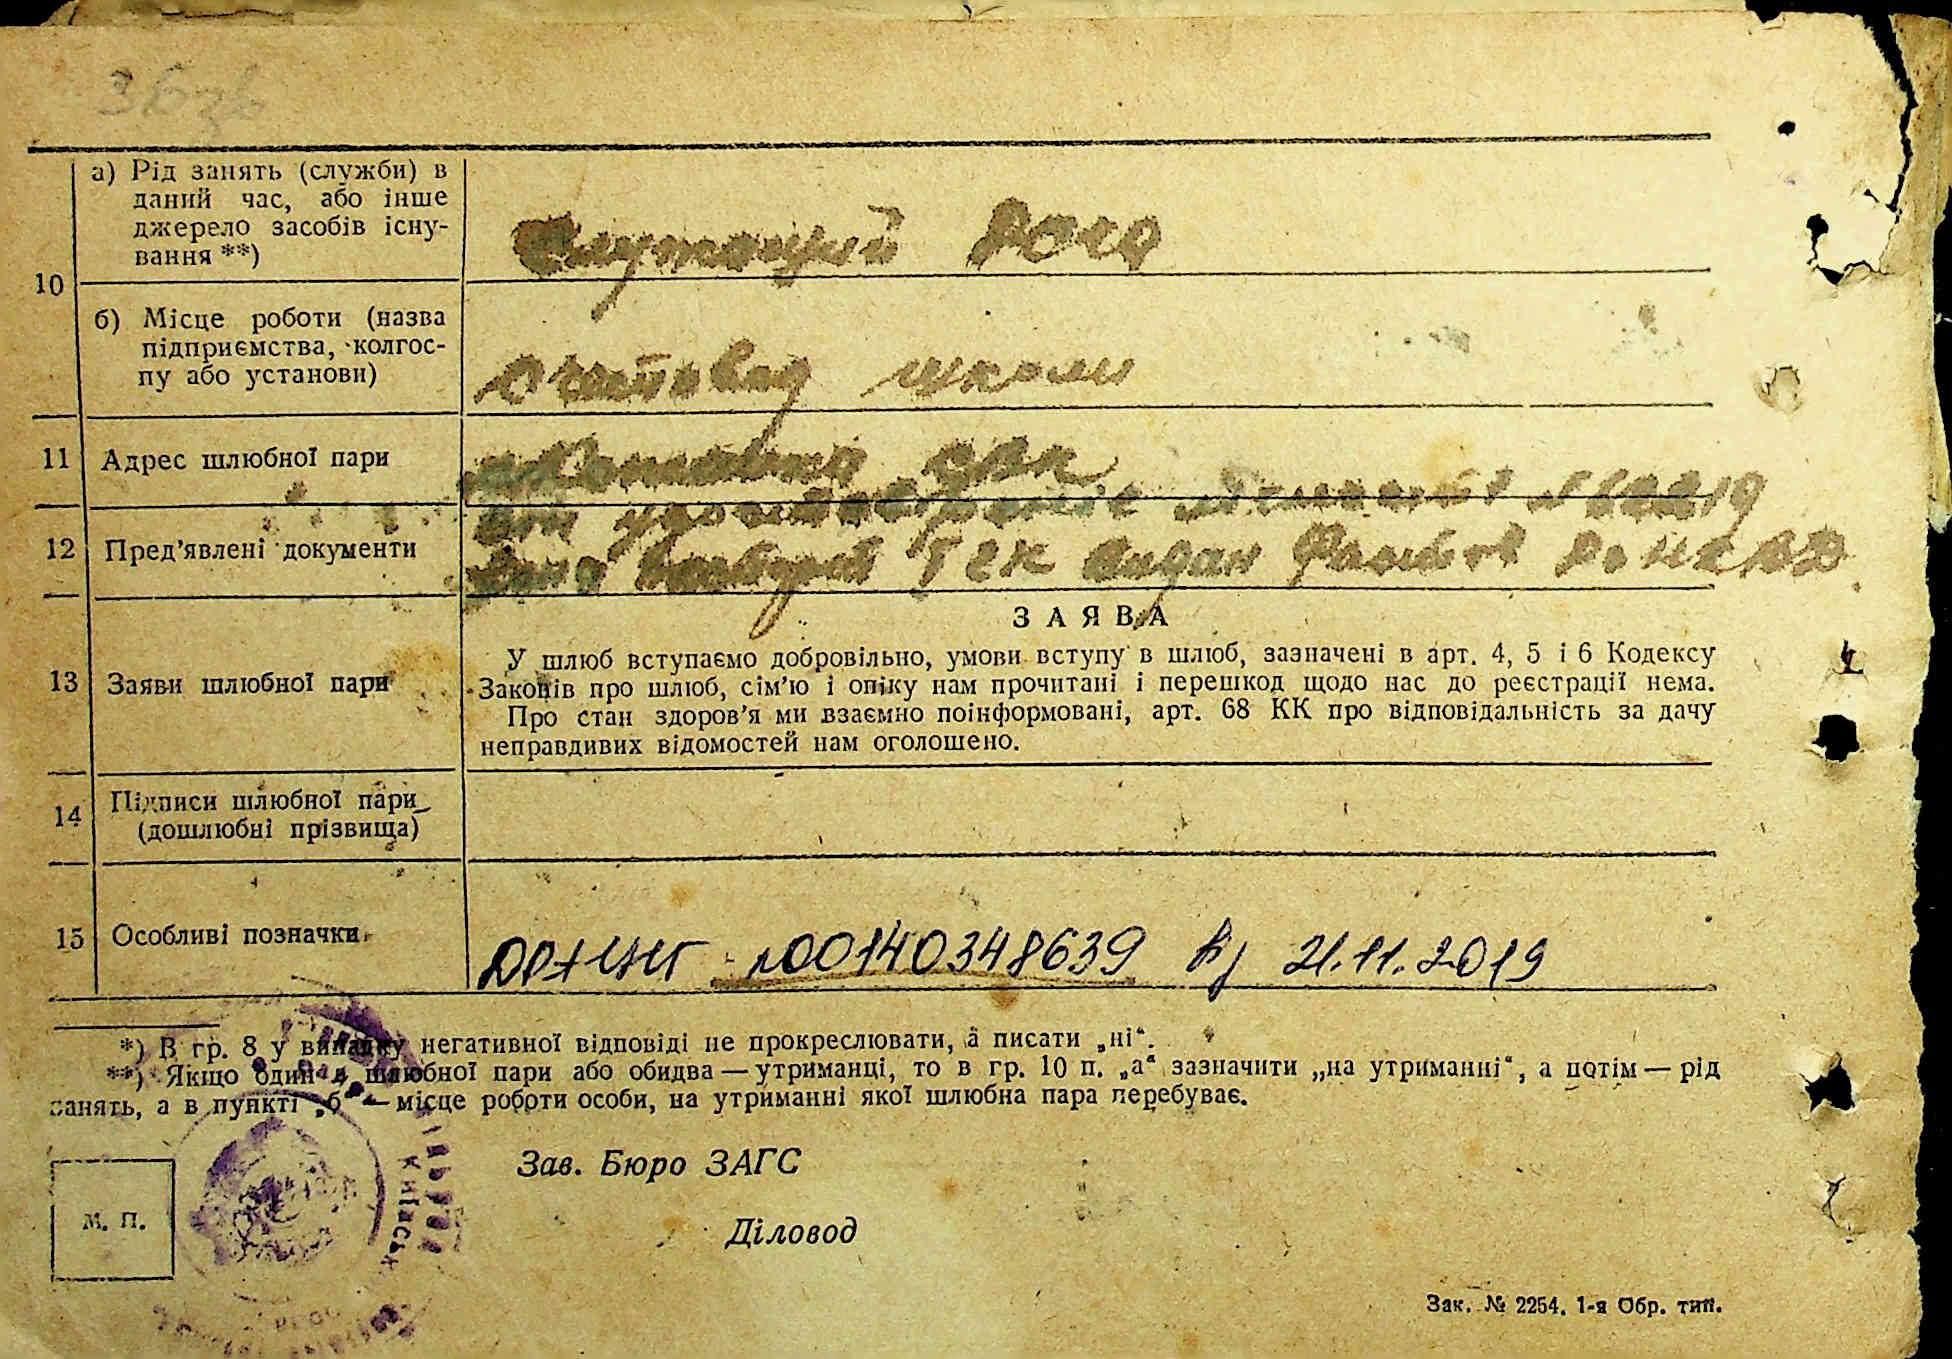 10
а) Рід занять (служби) в
даний час, або інше
джерело засобів існу-
вання **)
Служащий
б) Місце роботи (назва
підприємства, колгос-
пу або установи)
Счетовод школи
11
Адрес шлюбної пари
12
Пред’явлені документи
видан
13
Заяви шлюбної пари
ЗАЯВА
У шлюб вступаємо добровільно, умови вступу в шлюб, зазначені в арт. 4, 5 і 6 Кодексу
Законів про шлюб, сім’ю і опіку нам прочитані і перешкод щодо нас до реєстрації нема.
Про стан здоров’я ми взаємно поінформовані, арт. 68 КК про відповідальність за дачу
неправдивих відомостей нам оголошено.
14
Підписи шлюбної пари
(дошлюбні прізвища)
15
Особливі позначки
00140348639 21.11.2019
*) В гр. 8 у випадку негативної відповіді не прокреслювати, а писати „ні“.
**) Якщо один з шлюбної пари або обидва — утриманці, то в гр. 10 п. „а“ зазначити „на утриманні“, а потім — рід
занять, а в пункті „б“ — місце роботи особи, на утриманні якої шлюбна пара перебуває.
Зав. Бюро ЗАГС
М. П.
Діловод
Зак. № 2254. 1-я Обр. тип.